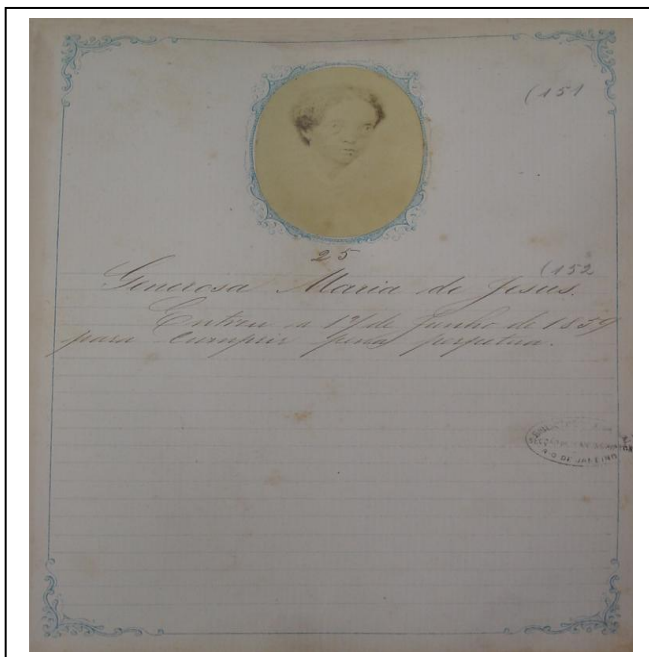 (151
25
(152
Generosa Maria de Jesus.
Entrou a de Junho de 1859
para cumprir pena perpetua.
RIO DE JANEIRO